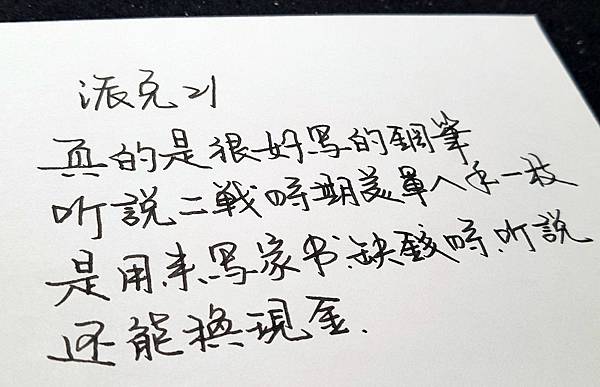 派克21
真的是很好写的鋼筆
听說二戦時期美軍人手一枝
是用来写家书.缺錢時.听說
还能換現金.